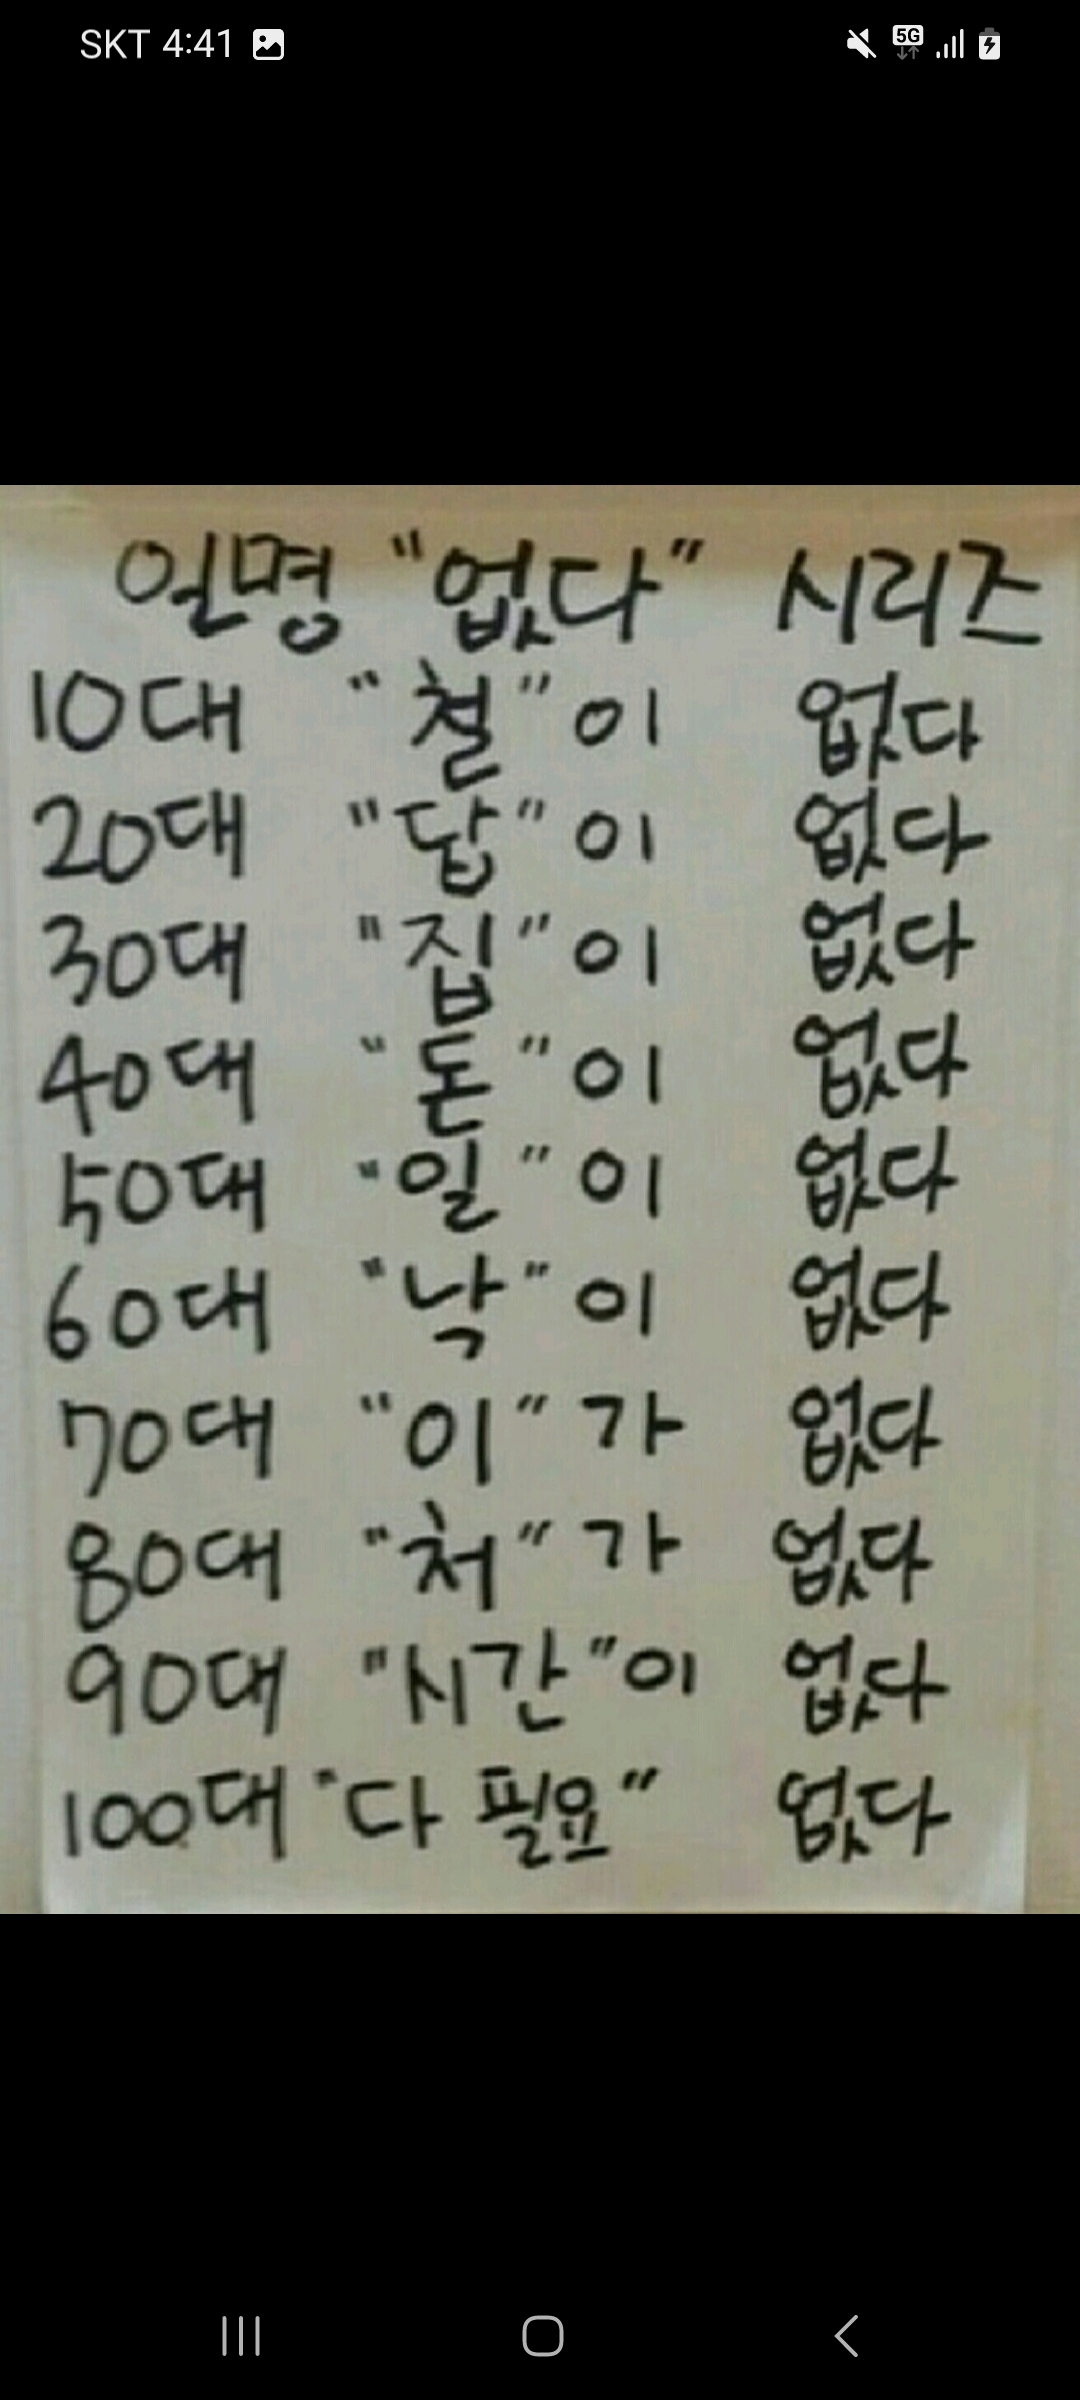 SKT 4:41 5G
일명 "없다" 시리즈
10대 "철"이 없다
20대 "답"이 없다
30대 "집"이 없다
40대 "돈"이 없다
50대 "일"이 없다
60대 "낙"이 없다
70대 "이"가 없다
80대 "처"가 없다
90대 "시간"이 없다
100대 "다 필요" 없다